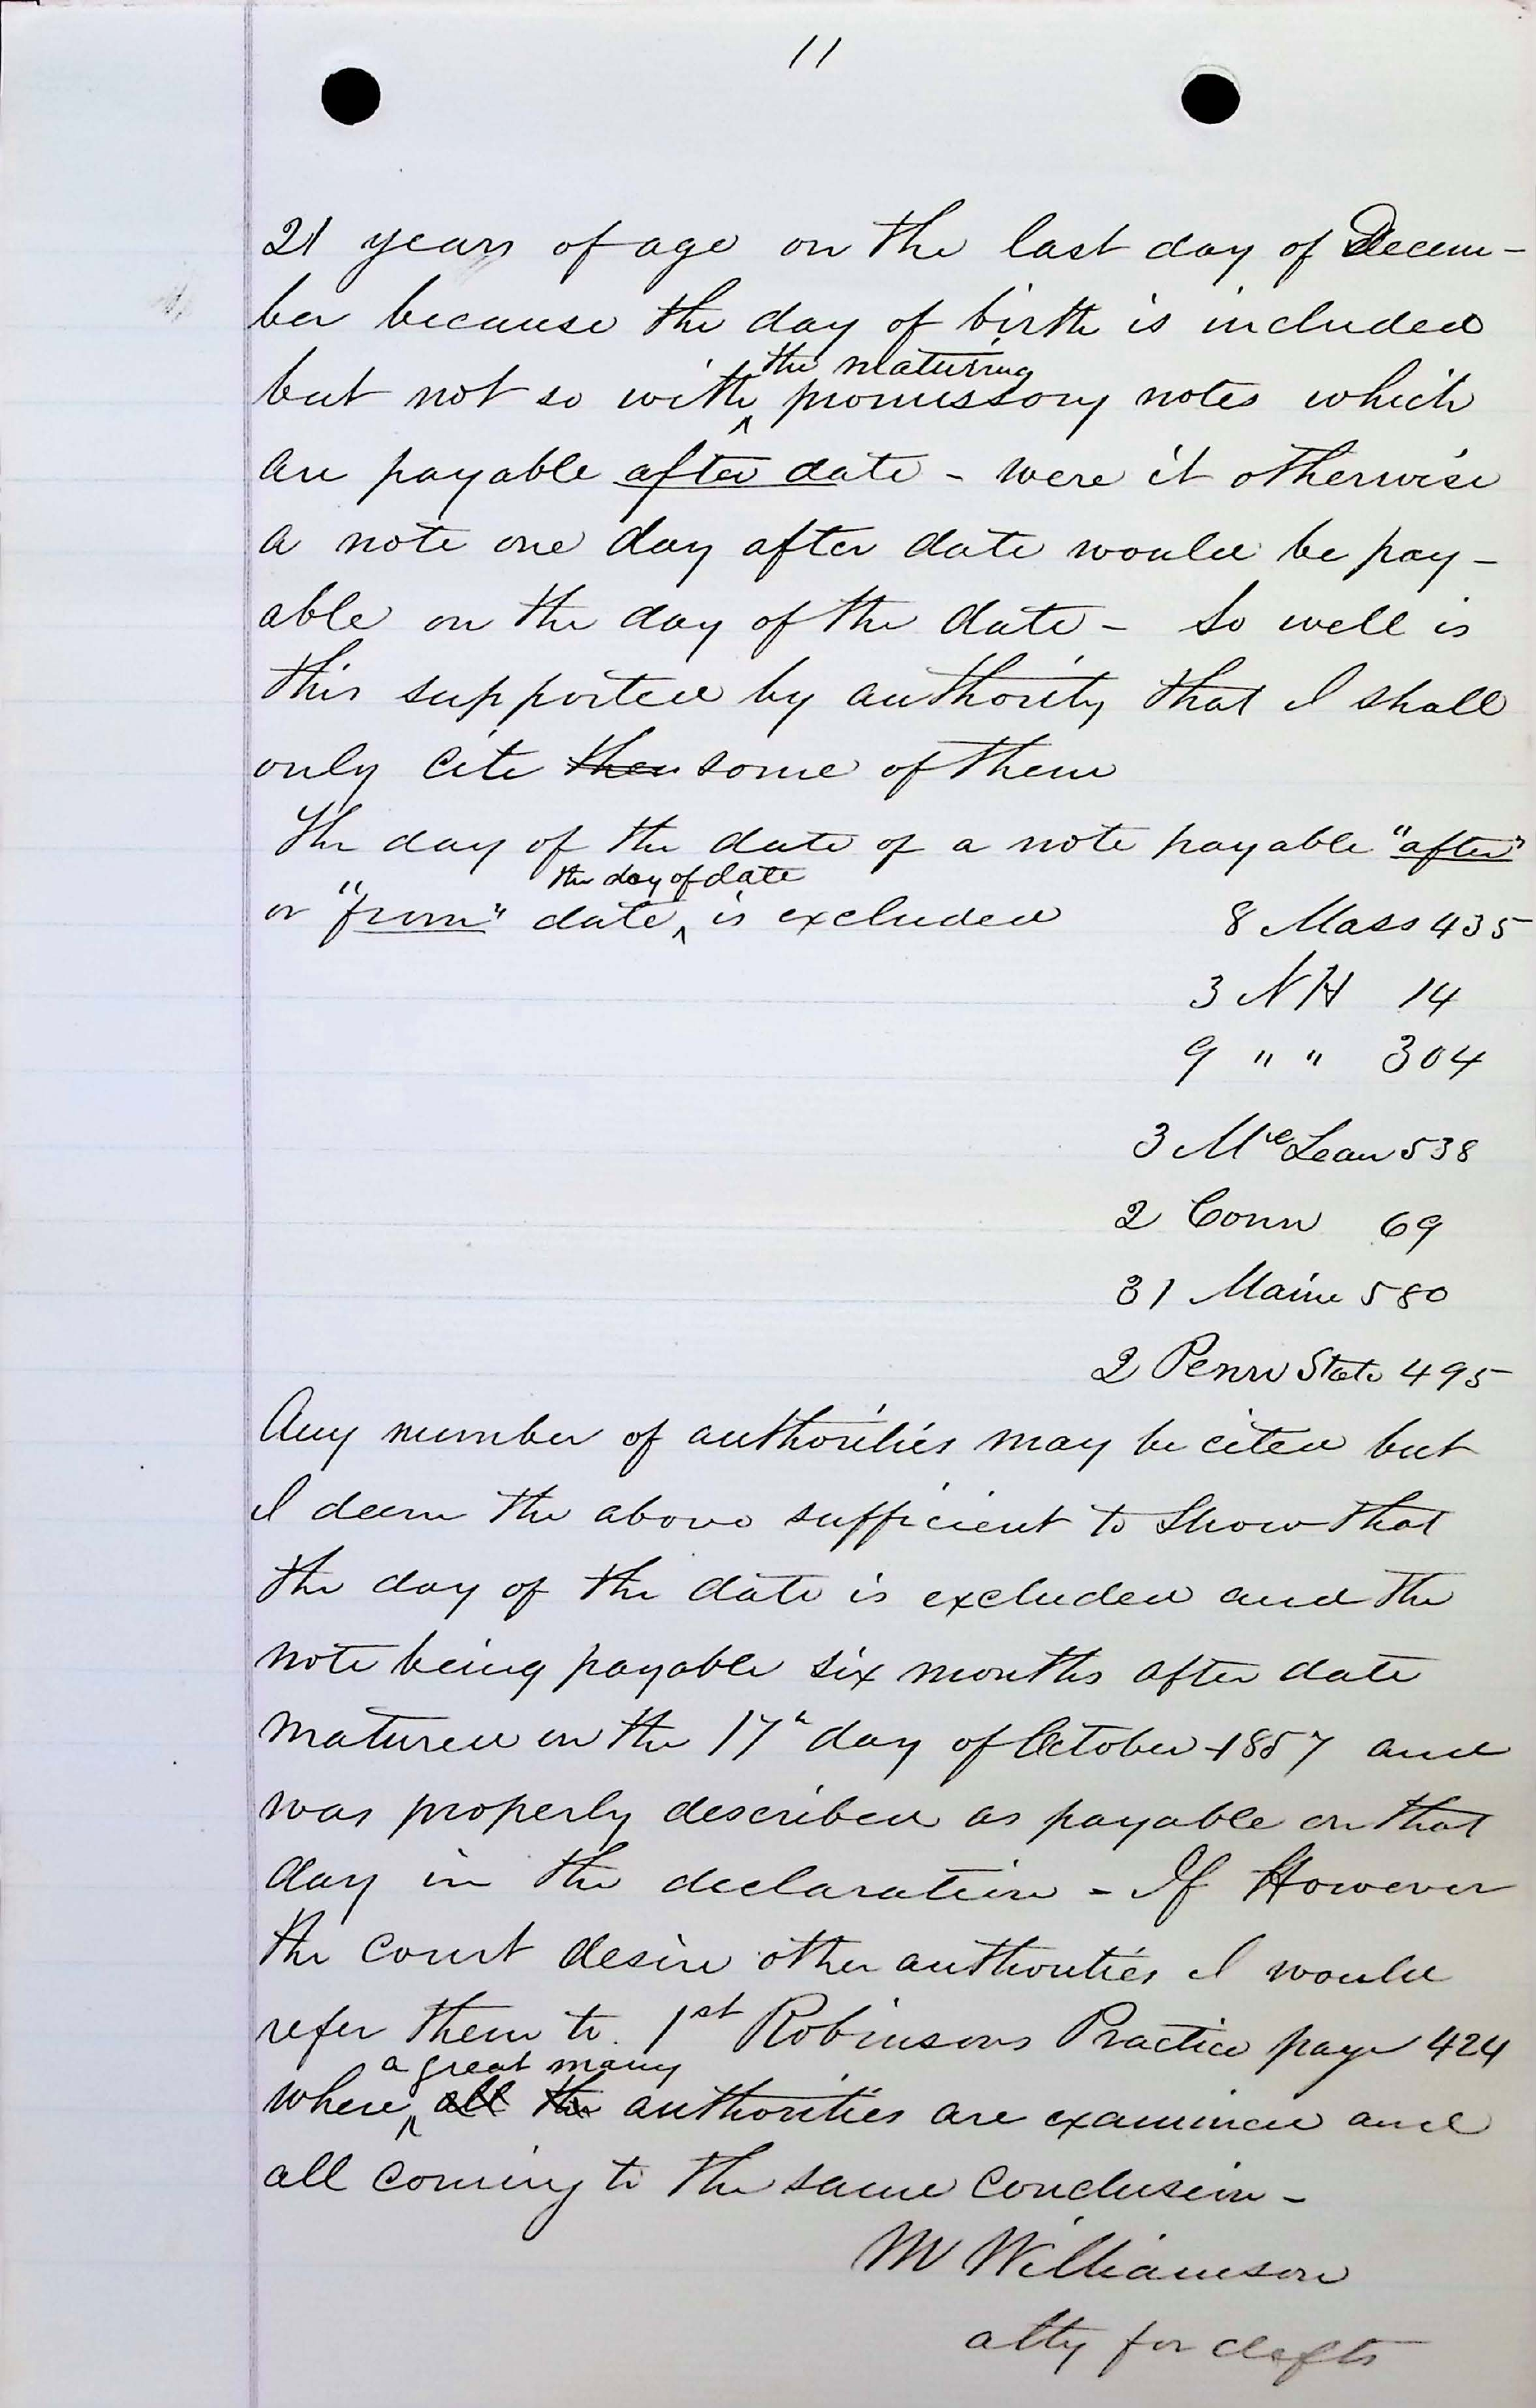 11
21 years of age on the last day of Decem-
ber because the day of birth is included
the maturing
but not so with promissory notes which
are payable after date - were it otherwise
a note one day after date would be pay-
able on the day of the date - So well is
this supported by authority that I shall
only cite then some of them
The day of the date of a note payable "after"
the day of date
or "from" date is excluded 8 Mass 435
3 NH 14
9 " " 304
3 McLean 538
2 Conn 69
31 Maine 580
2 Penn State 495
Any number of authorities may be cited but
I deem the above sufficient to show that
the day of the date is excluded and the
note being payable six months after date
matured on the 17" day of October 1857 and
was properly described as payable on that
day in the declaration - If However
the court desire other authorities I would
refer them to 1st Robinsons Practice page 424
a great many
where all the authorities are examined and
all coming to the same conclusion -
M Williamson
atty for defts